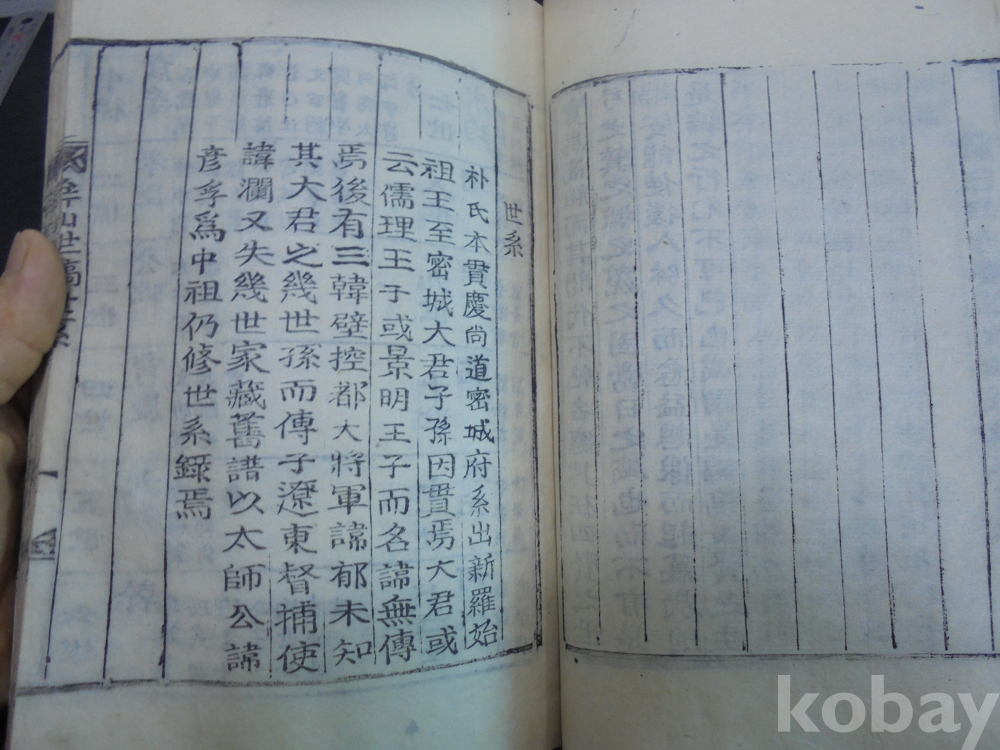 世系
朴氏本貫慶尚道密城府系出新羅始
祖王至密城大君子孫因貫焉大君或
云儒理王子或景明王子而名諱無傳
焉後有三韓壁控都大將軍諱郁未知
其大君之幾世孫而傳子遼東督捕使
諱瀾又失幾世家藏舊譜以太師公諱
彦孚爲中祖仍修世系錄焉
世稿世系
一
kobay